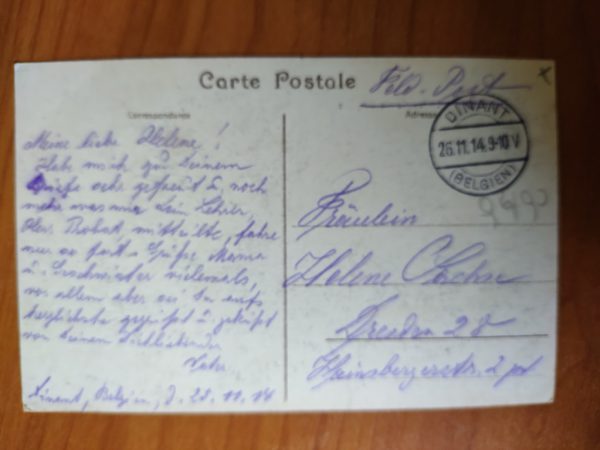 Carte Postale
Feld-Post
Correspondance
Adresse
DINANT
26.11.14.9-10V
(BELGIEN)
9490
Meine liebe Helene!
Habe mich zu Deinem
Briefe sehr gefreut u. noch
mehr was mir Dein Lehrer,
Herr mitteilte, fahre
nur so fort. Grüße Mama
u. Geschwister vielemals,
vor allem aber sei Du aufs
herzlichste gegrüßt u. geküßt
von Deinem Dichliebenden
Vater
Dinant, Belgien, d. 25.11.14
Fräulein
Helene
Dresden 28
Hainsbergerstr. 2 pt